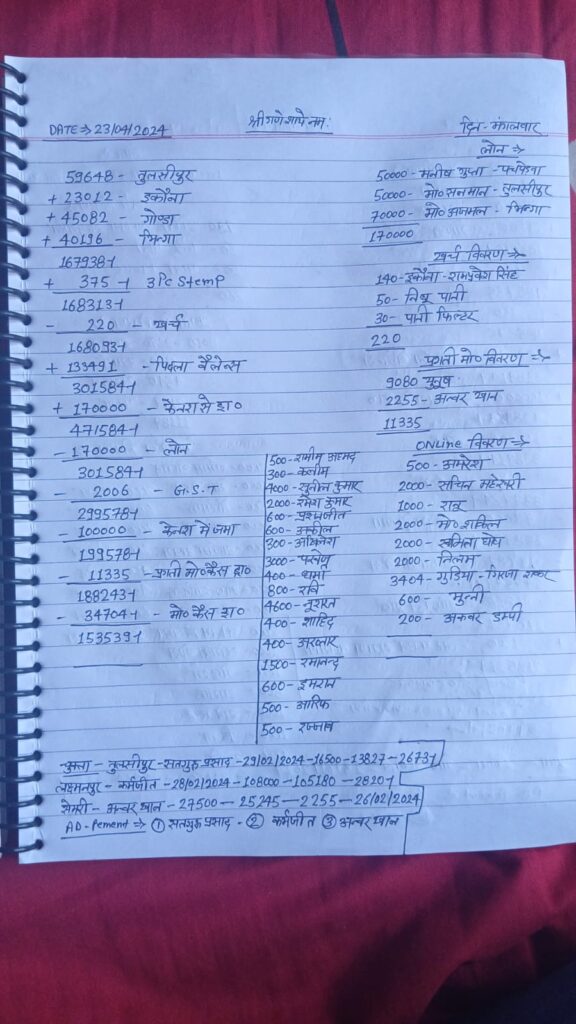 DATE⇒23/04/2024
श्री गणेशाये नमः
दिन - मंगलवार
59648 - तुलसीपुर
+ 23012 - इकौना
+ 45082 - गोण्डा
+ 40196 - भिन्गा
167938-1
+ 375-1 3Pc Stemp
168313-1
- 220 - खर्च
168093-1
+ 133491 - पिछला बैलेन्स
301584-1
+ 170000 - केनरा से ड्रा०
471584-1
- 170000 - लोन
301584-1
- 2006 - G.S.T
299578-1
- 100000 - केनरा में जमा
199578-1
- 11335 - फ्राती मो० कैस ड्रा०
188243-1
- 34704-1 - मो० कैस ड्रा०
153539-1
500 - समीम अहमद
300 - कलीम
4000 - सुनील कुमार
2000 - रमेश कुमार
600 - प्रथमजीत
600 - अकील
300 - अखिलेश
3000 - परवेज
400 - शमा
800 - रवि
4600 - नुसरत
400 - शाहिद
400 - अरबार
1500 - रमानन्द
600 - इमरान
500 - आरिफ
500 - रज्जाब
लोन ⇒
50000 - मनीष गुप्ता - पचपेड़वा
50000 - मो० सलमान - तुलसीपुर
70000 - मो० अजमल - भिन्गा
170000
खर्च विवरण ⇒
140 - इकौना - रामप्रवेश सिंह
50 - निम्बू पानी
30 - पानी फिल्टर
220
फ्राती मो० विवरण ⇒
9080 युनुष
2255 - अन्वर खान
11335
ONLine विवरण ⇒
500 - अमरेश
2000 - सचिन महेसरी
1000 - राजू
2000 - मो० शकिल
2000 - समिता घोष
2000 - निलम
3404 - गुड़िया - गिरजा शंकर
600 - मुन्नी
200 - अकबर डम्पी
तुलसीपुर - सतगुरु प्रसाद - 29/02/2024 - 16500 - 13827 - 2673-1
लक्ष्मनपुर - कर्मजीत - 28/02/2024 - 108000 - 105180 - 2820-1
सेमरी - अन्वर खान - 27500 - 25245 - 2255 - 26/02/2024
AD-Pement ⇒ ① सतगुरु प्रसाद - ② कर्मजीत ③ अन्वर खान